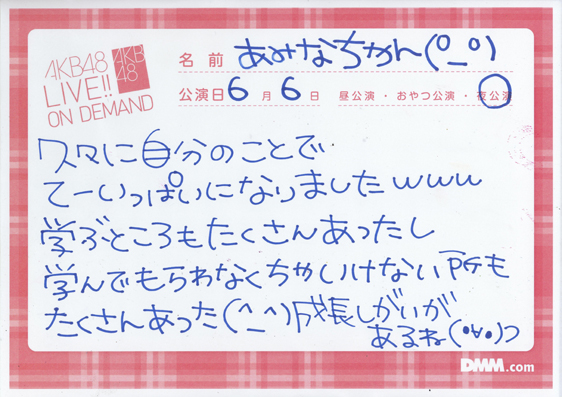 AKB48
LIVE!!
ON DEMAND
AKB
48
名前 あみなちゃん(º_º)
公演日 6月6日 昼公演・おやつ公演・夜公演
久々に自分のことで
てーいっぱいになりましたwww
学ぶところもたくさんあったし
学んでもらわなくちゃいけないも
たくさんあった(^_^)成長しがいが
あるね(•∀•)つ
DMM.com